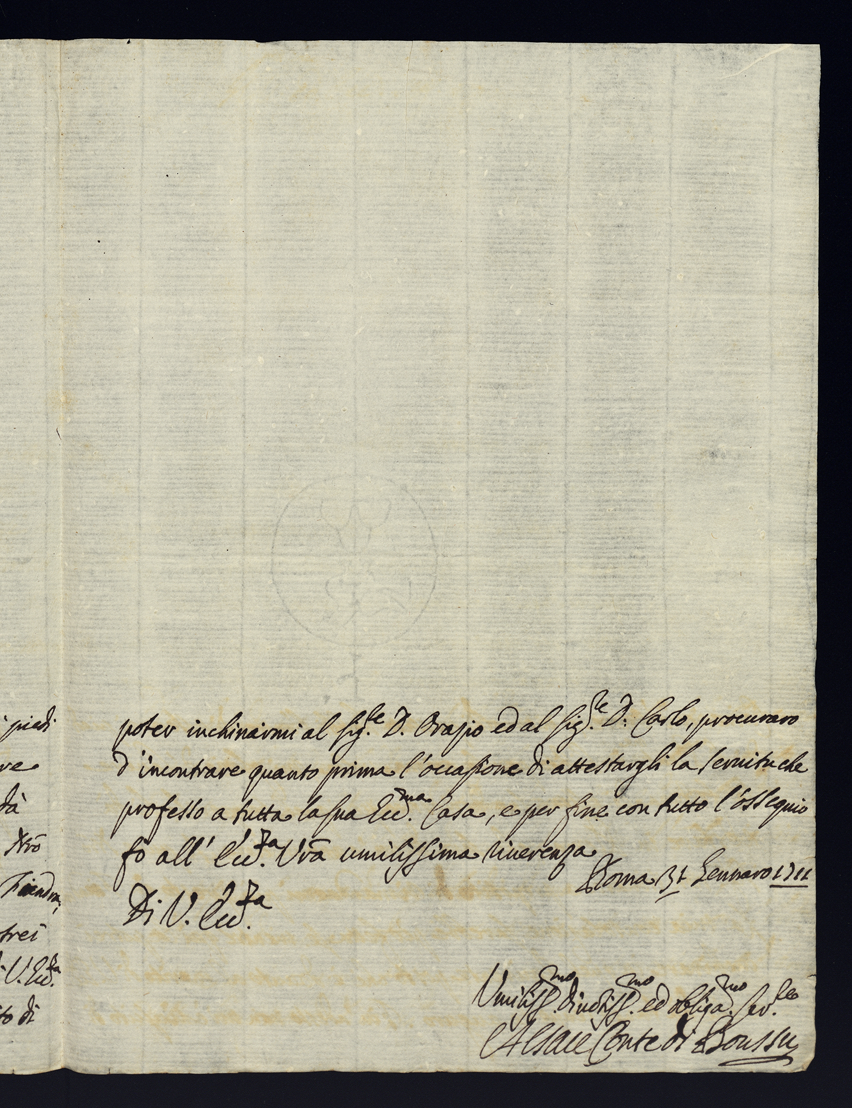 piedi
ve
dà
Nrō
Fiandra,
trei
V. Ecc.za
to di
poter inchinarmi al Sig.re D. Orazio ed al Sig.re D. Carlo, procuraro
d'incontrare quanto prima l'occasione di attestargli la servitù che
professo a tutta la sua Ecc.ma Casa, e per fine con tutto l'ossequio
fo all' Ecc.za Vrā umilissima riverenza
Roma 31 Gennaro 1711
Di V. Ecc.za
Umiliss.mo divotiss.mo ed obliga.mo Ser.re
Alsace Conte di Boussu